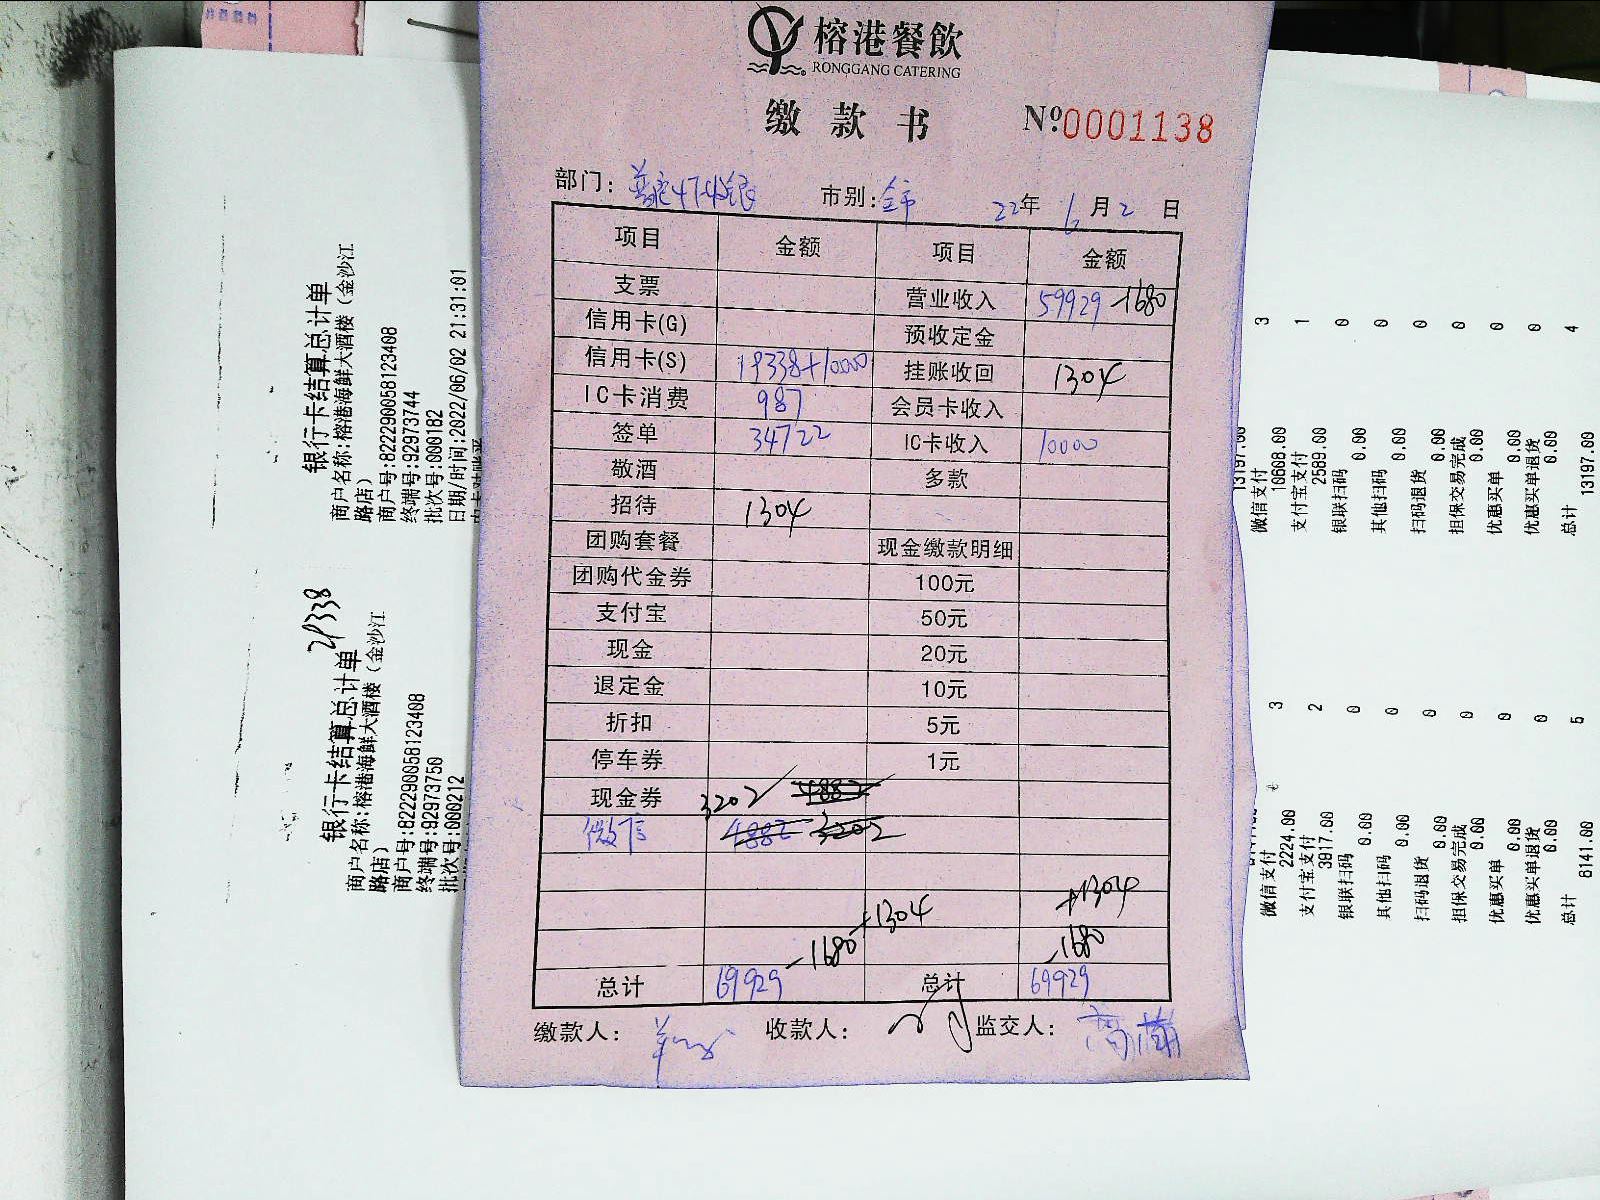 榕港餐飲
RONGGANG CATERING
缴款书 Nº:0001138
部门: 市别:全市 22年 6月2日
项目 金额 项目 金额
支票 营业收入 59929 -1680
信用卡(G) 预收定金
信用卡(S) 19338+10000 挂账收回 1304
IC卡消费 987 会员卡收入
签单 34722 IC卡收入 10000
敬酒 多款
招待 1304
团购套餐 现金缴款明细
团购代金券 100元
支付宝 50元
现金 20元
退定金 10元
折扣 5元
停车券 1元
现金券 3202 4882
微信 4882 3202
+1304 +1304
-1680 -1680
总计 69929 总计 69929
缴款人: 收款人: 监交人:
银行卡结算总计单
商户名称:榕港海鲜大酒楼(金沙江
路店)
商户号:822290058123408
终端号:92973744
批次号:000182
日期/时间:2022/06/02 21:31:01
29338
银行卡结算总计单
商户名称:榕港海鲜大酒楼(金沙江
路店)
商户号:822290058123408
终端号:92973750
批次号:000212
13197.00
微信支付 3
10608.00
支付宝支付 1
2589.00
银联扫码 0
0.00
其他扫码 0
0.00
扫码退货 0
0.00
担保交易完成 0
0.00
优惠买单 0
0.00
优惠买单退货 0
0.00
总计 4
13197.00
微信支付 3
2224.00
支付宝支付 2
3917.00
银联扫码 0
0.00
其他扫码 0
0.00
扫码退货 0
0.00
担保交易完成 0
0.00
优惠买单 0
0.00
优惠买单退货 0
0.00
总计 5
8141.00